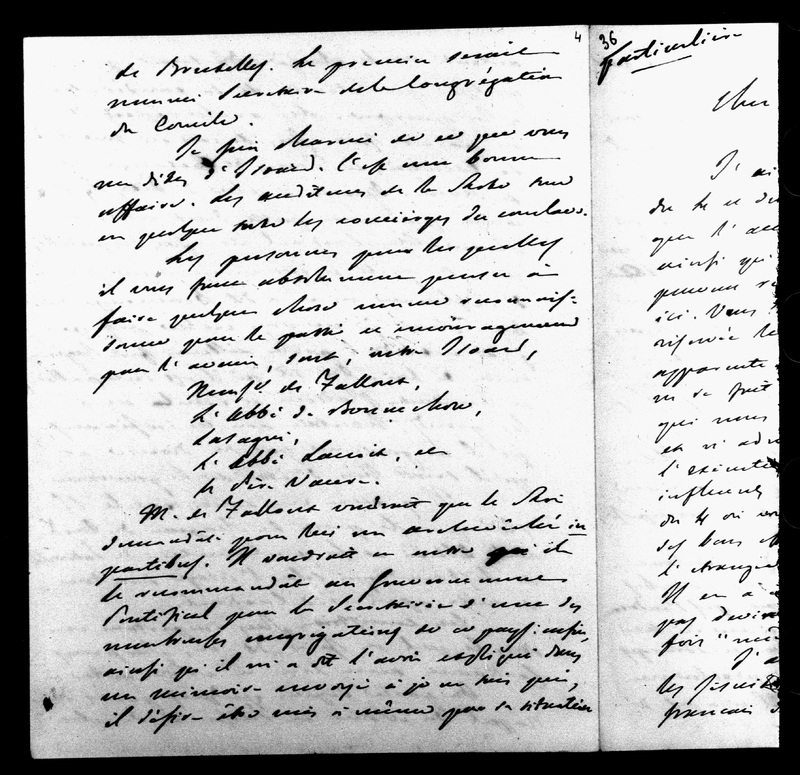 4
de Bruxelles. Le premier serait
nommé Secrétaire de la Congrégation
du Concile.
Je suis charmé de ce que vous
me dites d'Isoard. C'est une bonne
affaire. Les auditeurs de la Rote sont
en quelque sorte les concierges du conclave.
Les personnes pour lesquelles
il vous faut absolument penser à
faire quelque chose comme reconnais-
sance pour le passé et encouragement
pour l'avenir, sont, outre Isoard,
Monsgr de Falloux,
L'abbé de Bonnechose,
Lasagni,
L'abbé Lacroix, et
le père Vaures.
M. de Falloux voudrait que le Roi
demandât pour lui un archevêché in
partibus. Il voudrait en outre qu'il
le recommandât au Gouvernement
Pontifical pour la Secrétairerie d'une des
nombreuses congrégations de ce pays. enfin,
ainsi qu'il m'a dit l'avoir expliqué dans
un mémoire envoyé à je ne sais qui,
il désire être mis à même par sa situation
36
particulière
Cher
J'ai
du
que l'
ainsi qu
ici. Vous
apparente
qui nous
et n'
influences
des bons
Il en a
pas
fois "
J'a
les Jésuites
français